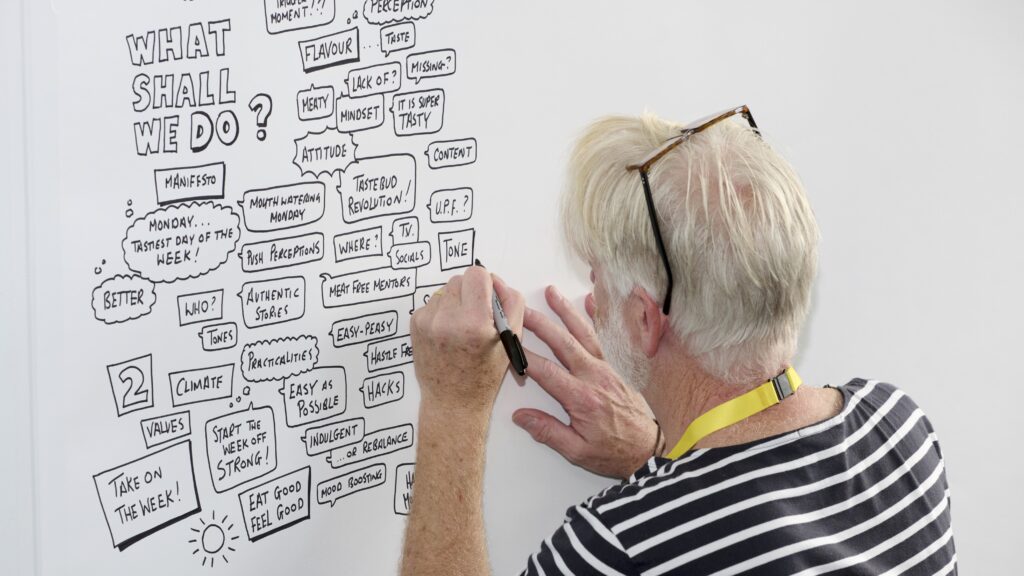 MOMENT!??
PERCEPTION
WHAT
SHALL
WE DO?
FLAVOUR
...
TASTE
MISSING?
LACK OF?
MEATY
MINDSET
IT IS SUPER
TASTY
ATTITUDE
CONTENT
MANIFESTO
TASTEBUD
REVOLUTION!
MOUTH WATERING
MONDAY
U.P.F.?
MONDAY...
TASTIEST DAY OF THE
WEEK!
PUSH PERCEPTIONS
WHERE?
T.V.
SOCIALS
TONE
MEAT FREE MENTORS
BETTER
WHO?
AUTHENTIC
STORIES
TONES
EASY-PEASY
PRACTICALITIES
HASTLE FREE
2
CLIMATE
EASY AS
POSSIBLE
HACKS
VALUES
START THE
WEEK OFF
STRONG!
INDULGENT
...OR REBALANCE
TAKE ON
THE WEEK!
EAT GOOD
FEEL GOOD
MOOD BOOSTING